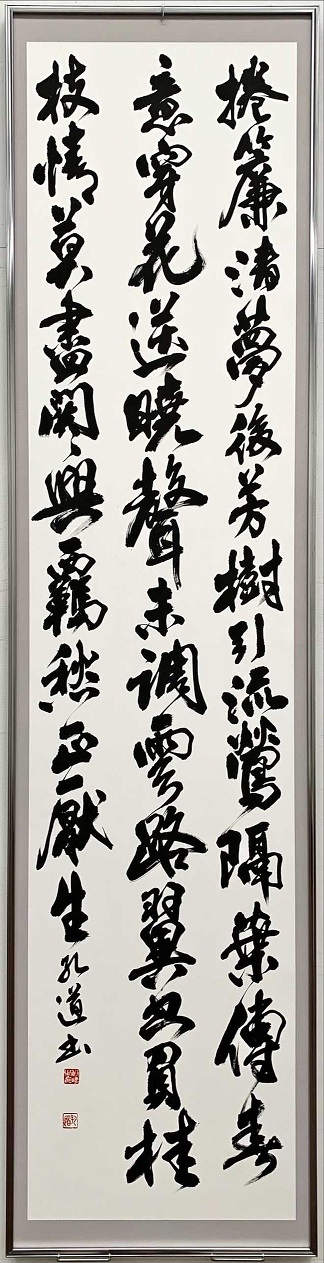 捲簾清夢後芳樹引流鶯隔葉傳春
意穿花送曉聲未調雲路翼空負桂
枝情莫盡関々興羈愁正厭生 孔道書